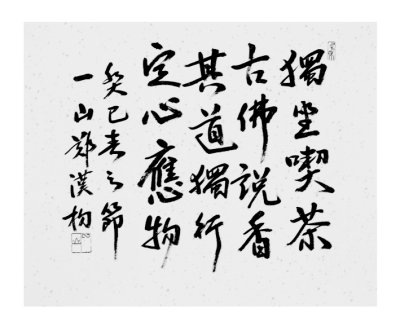 獨坐喫茶
古佛說香
其道獨行
定心應物
癸巳春之節
一山鄭漢枃